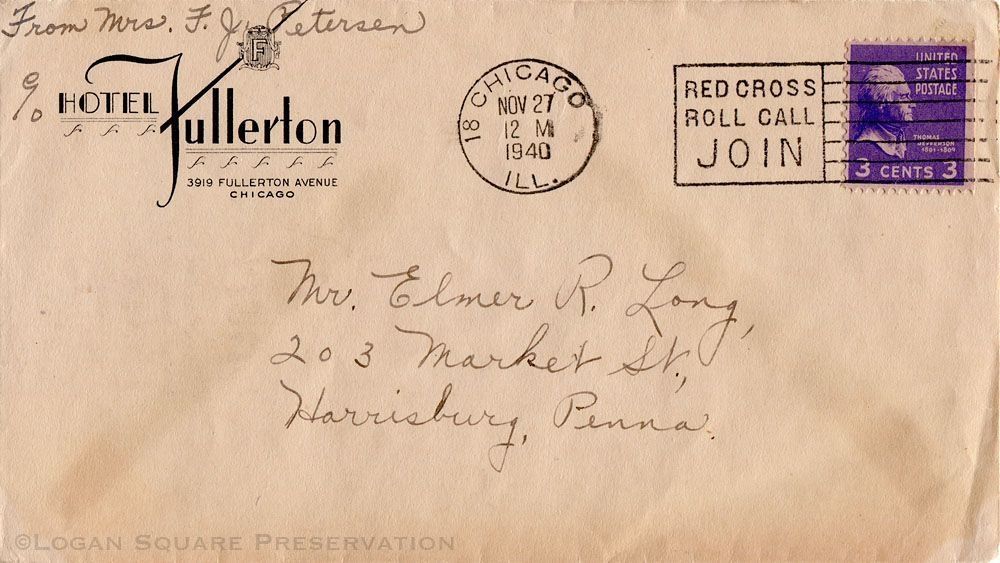 From Mrs. F. J. Petersen
c/o HOTEL Fullerton
F
3919 FULLERTON AVENUE
CHICAGO
18 CHICAGO
NOV 27
12 M
1940
ILL.
RED CROSS
ROLL CALL
JOIN
UNITED
STATES
POSTAGE
THOMAS
JEFFERSON
1801-1809
3 CENTS 3
Mr. Elmer R. Long,
203 Market St.,
Harrisburg, Penna.
©LOGAN SQUARE PRESERVATION